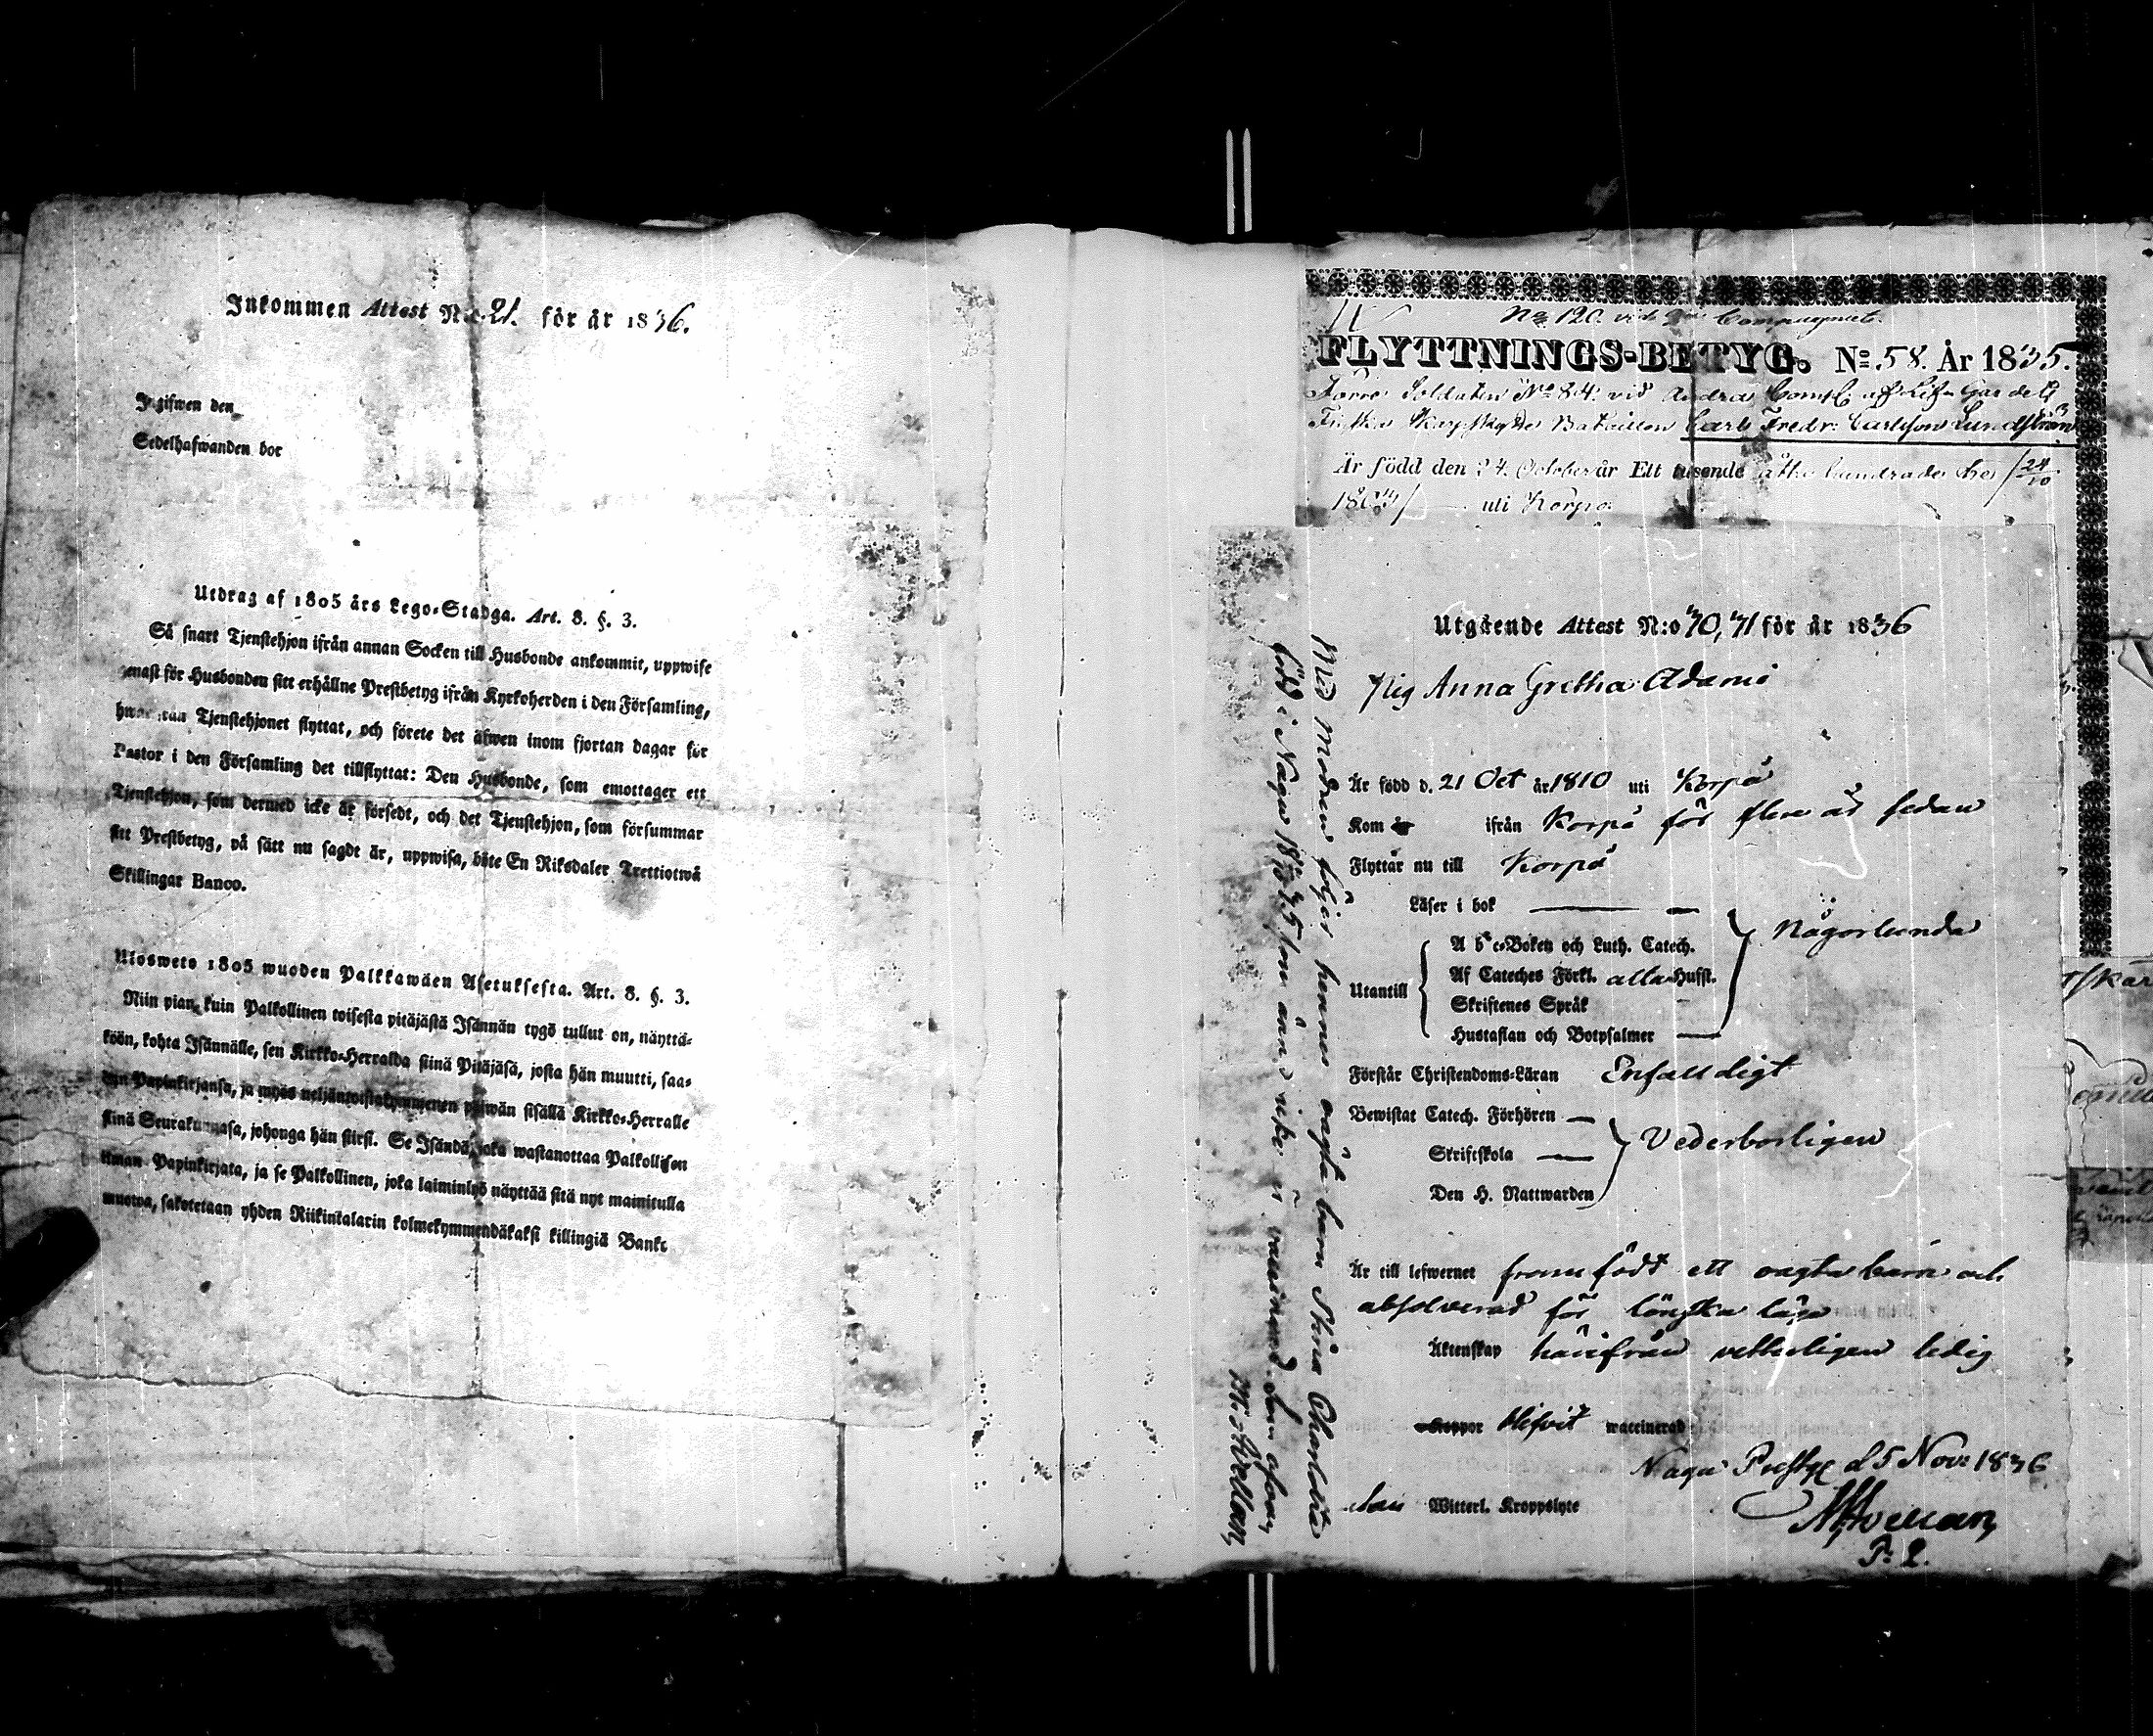 Inkommen Attest N:o 21. för år 1836.
Ingifwen den
Sedelhafwanden bor
Utdrag af 1805 års Lego-Stadga. Art. 8. §. 3.
Så snart Tjenstehjon ifrån annan Socken till Husbonde ankommit, uppwise
genast för Husbonden sitt erhållne Prestbetyg ifrån Kyrkoherden i den Församling,
hwarifrån Tjenstehjonet flyttat, och förete det äfwen inom fjortan dagar för
Pastor i den Församling det tillflyttat: Den Husbonde, som emottager ett
Tjenstehjon, som dermed icke är försedt, och det Tjenstehjon, som försummar
sitt Prestbetyg, på sätt nu sagdt är, uppwisa, böte En Riksdaler Trettiotwå
Skillingar Banco.
Uloswets 1805 wuoden Palkkawäen Asetuksesta. Art. 8. §. 3.
Niin pian, kuin Palkollinen toisesta pitäjästä Isännän tygö tullut on, näyttä-
köön, kohta Isännälle, sen Kirkko-Herralda siinä Pitäjäsä, josta hän muutti, saa-
dun Papinkirjansa, ja myös neljäntoistakymmenen päiwän sisällä Kirkko-Herralle
siinä Seurakunnasa, johonga hän siirsi. Se Isändä, joka wastanottaa Palkollisen
ilman Papinkirjata, ja se Palkollinen, joka laiminlyö näyttää sitä nyt mainitulla
muowa, sakotetaan yhden Riikintalarin kolmekymmendäkaksi killingiä Banko
No 120. vid Compagniet.
FLYTTNINGS-BETYG. No 58. År 1835.
Förre Soldaten No 84. vid Andra Comp. af Lif-Gardets
Finska Skarpskytte Bataillon Carl Fredr: Carlsson Lundström
Är född den 24. October år Ett tusende åtta hundrade tre /24/10
1803/ uti Korpo.
Utgående Attest N:o 70, 71 för år 1836
Pig Anna Gretha Adams
Är född d. 21 Oct år 1810 uti Korpo
Kom år ifrån Korpo för flere år sedan
Flyttar nu till Korpo
Läser i bok
Utantill
A b c-Boken och Luth. Catech.
Af Cateches Förkl. alla Hufst.
Skriftenes Språk
Hustaflan och Botpsalmer
Någorlunda
Förstår Christendoms-Läran Enfalldigt
Bewistat Catech. Förhören
Skriftskola
Den H. Nattwarden
Vederborligen
Är till lefwernet framfödt ett oägta barn och
absolverad för lönska läge
Äktenskap härifrån vetterligen ledig
Koppor blifvit waccinerad
Nagu Prestg d 5 Nov: 1836
utan Witterl. Kroppslyte
Med modren följer hennes oägta barn Stina Charlotta
född i Nagu 1835, som ännu icke är vaccinerad.